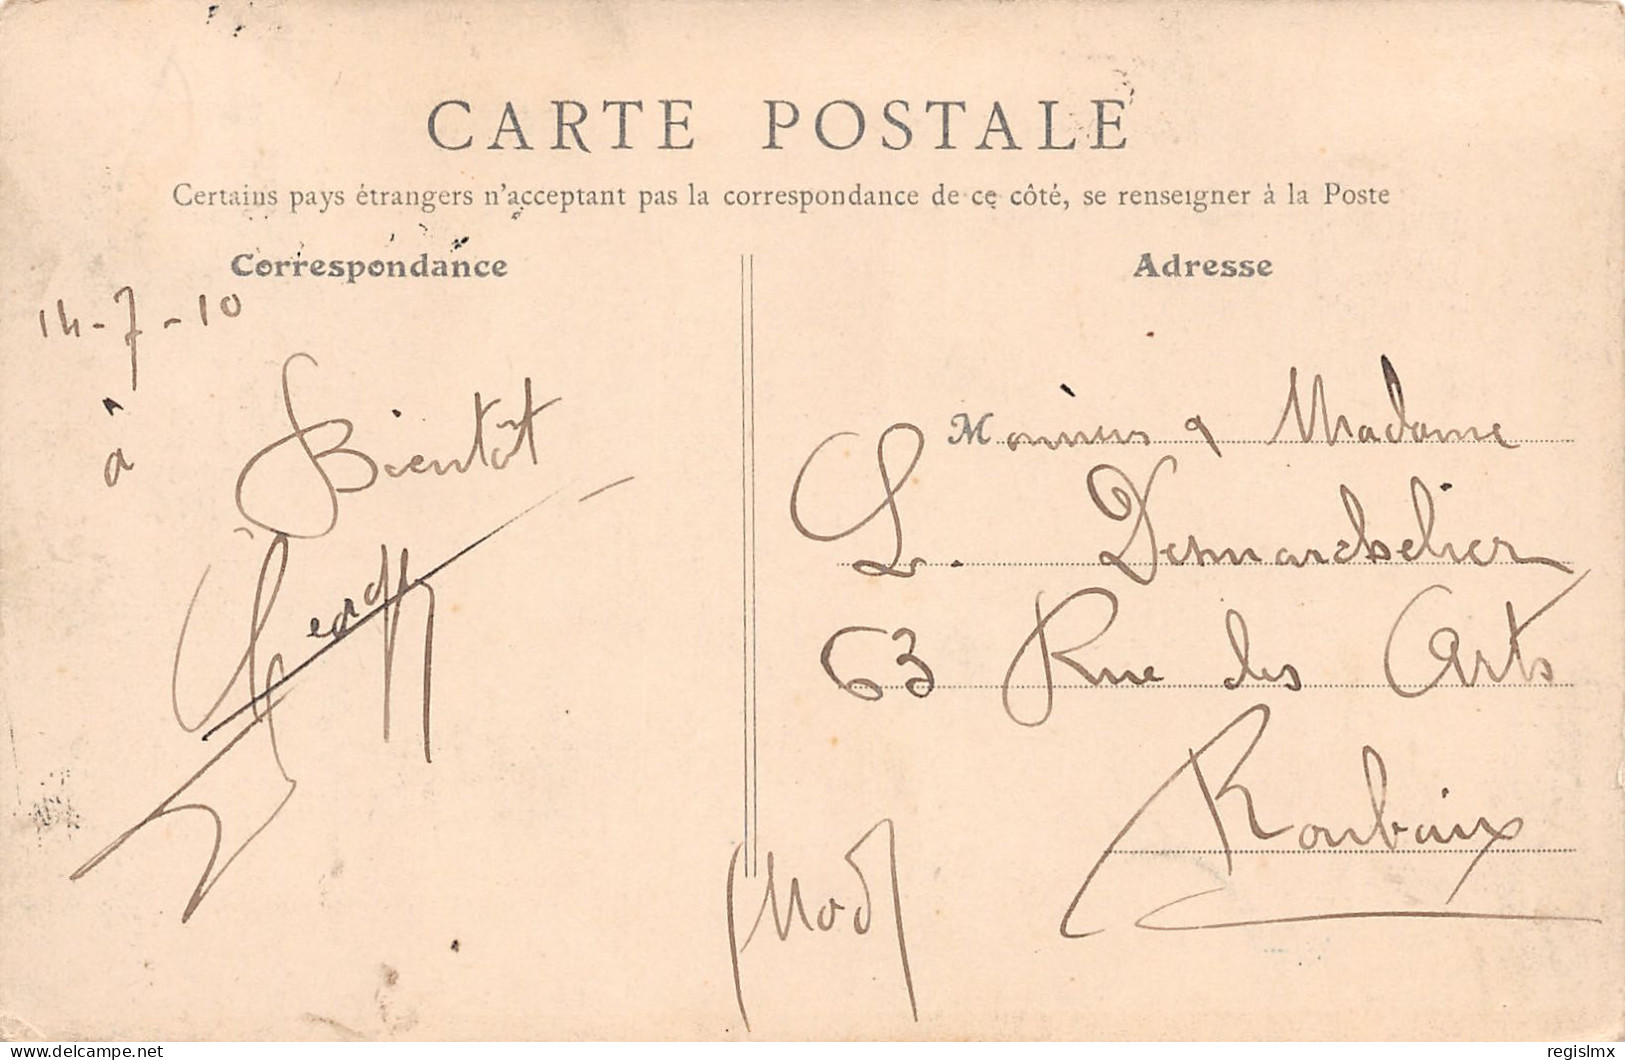 CARTE POSTALE
Certains pays étrangers n'acceptant pas la correspondance de ce côté, se renseigner à la Poste
Correspondance
14-7-10
à Bientôt
Adresse
Monsieur & Madame
L. Desmarchelier
63 Rue des Arts
Roubaix
(Nord)
delcampe.net
regislmx